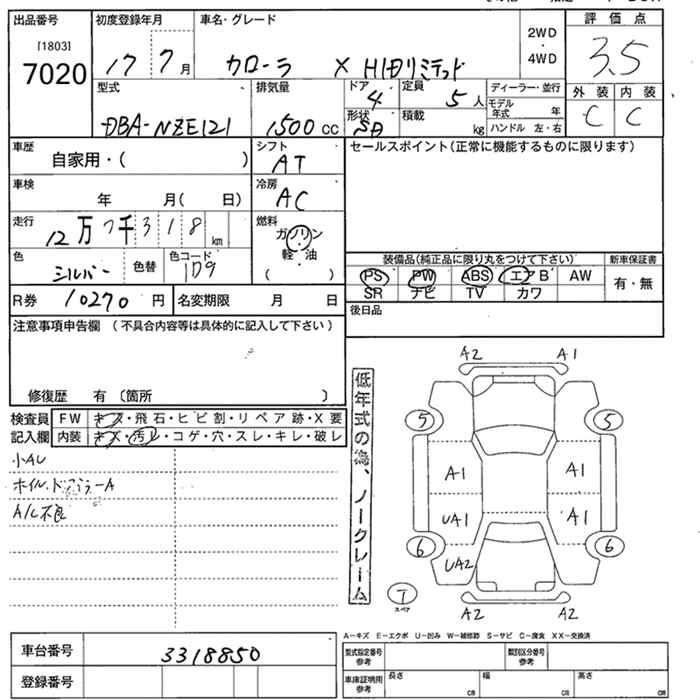 出品番号 初度登録年月 車名・グレード 評価点
[1803]
7020 17 7月 カローラ X HIDリミテッド 2WD・4WD 3.5
外装 内装
C C
型式 排気量 ドア 定員 ディーラー・並行
DBA-NZE121 1500cc 4 5人 モデル年式 年
形状 積載 ハンドル 左・右
SD kg
車歴 シフト セールスポイント(正常に機能するものに限ります)
自家用・( ) AT
車検 冷房
年 月( 日) AC
走行 燃料
12万7千318km ガソリン・軽・油 ( )
色 色替 色コード 装備品(純正品に限り丸をつけて下さい) 新車保証書
シルバー 1D9 PS PW ABS エアB AW 有・無
R券 10270円 名変期限 月 日 SR ナビ TV カワ
注意事項申告欄 (不具合内容等は具体的に記入して下さい) 後日品
修復歴 有 (箇所 )
検査員 FW キズ・飛石・ヒビ割・リペア跡・X要
記入欄 内装 キズ・汚レ・コゲ・穴・スレ・キレ・破レ
小AU
ホイル、ドアミラーA
A/C不良
低年式の為、ノークレーム
A2 A1
5 5
A1 A1
UA1 A1
6 6
UA2
T
スペア
A2 A2
A-キズ E-エクボ U-凹み W-補修跡 S-サビ C-腐食 XX-交換済
車台番号 3318850 型式指定番号 参考 類別区分番号 参考
登録番号 車庫証明用 参考 長さ cm 幅 cm 高さ cm